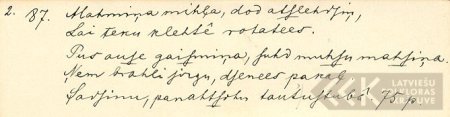 2. 87. Mahmiņa mihļa, dod atslehdsiņ,
Lai teku klehtê rotatees.
Pus ause gaismiņa, suhd muhsu mahsiņa.
Nem brahli jirgu, dsenees pakaļ
Sadsinu, panahkschu tautu stubô 75 p.
LATVIEŠU
FOLKLORAS
KRĀTUVE